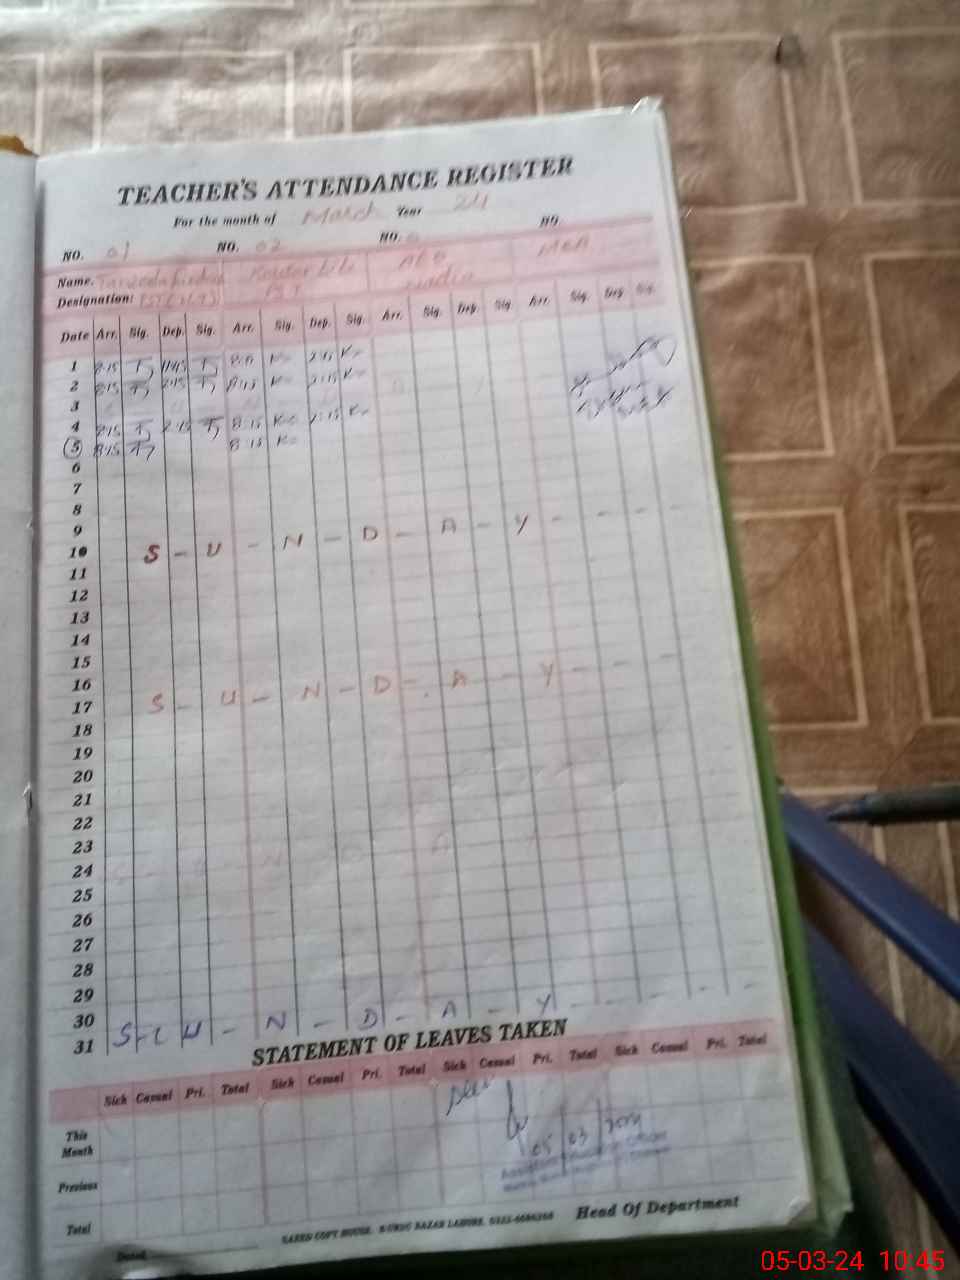 TEACHER'S ATTENDANCE REGISTER
For the month of March Year 24
NO. 01 NO. 02 NO. NO.
Name. AEO MEA
Designation: Nadia
Date Arr. Sig. Dep. Sig. Arr. Sig. Dep. Sig. Arr. Sig. Dep. Sig. Arr. Sig. Dep. Sig.
1 8:15 8:15 K
2 8:15 2:15 8:15 K 2:15 K
3
4 8:15 2:15 8:15 K 2:15 K
5 8:15 8:15 K
6
7
8
9
10 S - U - N - D - A - Y - - - -
11
12
13
14
15
16
17 S - U - N - D - A - Y - - -
18
19
20
21
22
23
24
25
26
27
28
29
30
31 S - U - N - D - A - Y - - - - -
STATEMENT OF LEAVES TAKEN
Sick Casual Pri. Total Sick Casual Pri. Total Sick Casual Pri. Total Sick Casual Pri. Total
This Month
Previous
Total
Seen
05/03/2024
Assistant Education Officer
Head Of Department
SAEED COPY HOUSE, URDU BAZAR LAHORE.
Dated
05-03-24 10:45